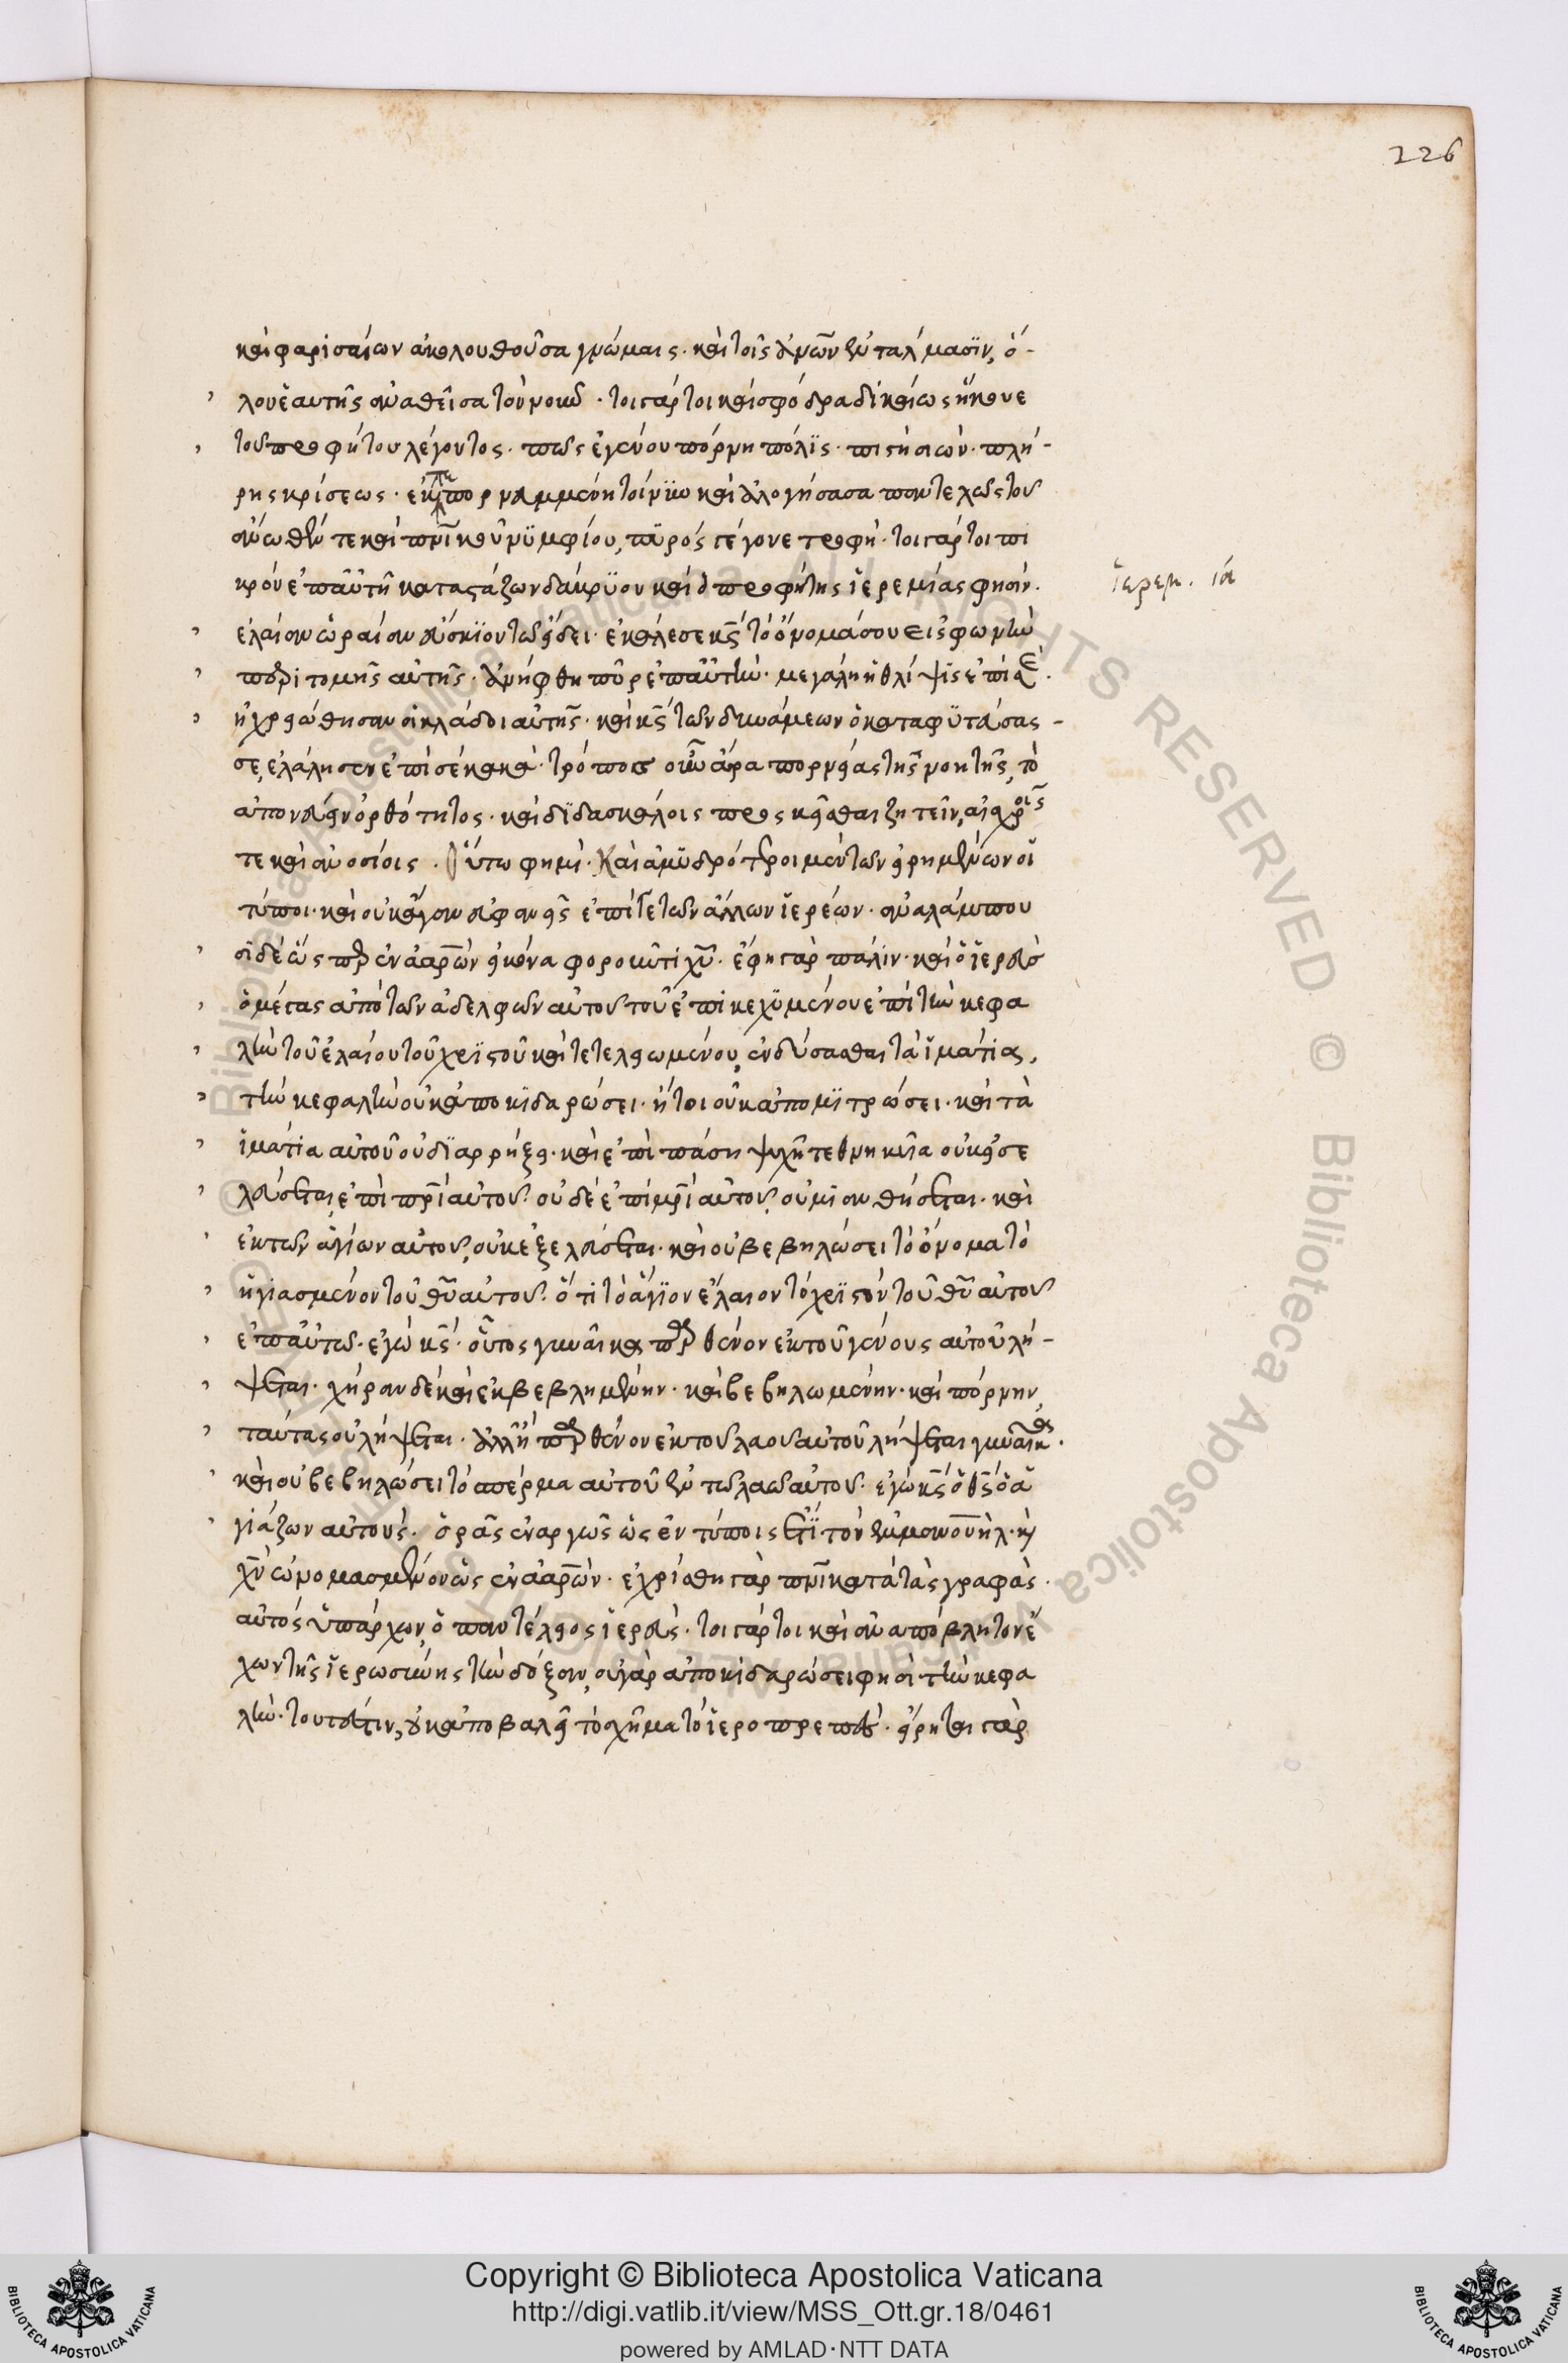 226
καὶ φαρισαίων ἀκολουθοῦσα γνώμαις· καὶ τοῖς ἐκείνων ἐντάλμασιν, ὅ-
λου ἑαυτῆς ἀναθεῖσα τὸν νοῦν· τοιγάρτοι καὶ σφόδρα δικαίως ἤκουε
τοῦ προφήτου λέγοντος· πῶς ἐγένου πόρνη πόλις· πιστὴ σιών· πλή-
ρης κρίσεως· ἐκπεπορνευμένη τοίνυν καὶ ἀλογήσασα παντελῶς τοῦ
ἄνωθέν τε καὶ πνικοῦ νυμφίου, πυρὸς γέγονε τροφή· τοιγάρτοι πι
κρὸν ἐπ αὐτῇ καταστάζων δάκρυον καὶ ὁ προφήτης ἱερεμίας φησίν·
ἱερεμ. ια
ἐλαίαν ὡραίαν εὔσκιον τῷ εἴδει· ἐκάλεσε κς τὸ ὄνομά σου εἰς φωνὴν
περιτομῆς αὐτῆς· ἀνήφθη πῦρ ἐπ αὐτήν· μεγάλη ἡ θλίψις ἐπὶ σέ·
ἠχρειώθησαν οἱ κλάδοι αὐτῆς· καὶ κς τῶν δυνάμεων ὁ καταφυτεύσας
σε, ἐλάλησεν ἐπὶ σὲ κακά· τρόπος οὖν ἄρα πορνείας τῆς νοητῆς, τὸ
ἀπονεύειν ὀρθότητος· καὶ διδασκάλοις προσκεῖσθαι ζητεῖν, αἰσχροῖς
τε καὶ ἀνοσίοις. Οὕτω φημί· Καὶ ἀμυδρότεροι μὲν τῶν εἰρημένων οἱ
τύποι· καὶ οὐκ ἄγαν εὐφανεῖς ἐπί γε τῶν ἄλλων ἱερέων· ἀναλάμπου
σι δὲ ὥσπερ ἐν ἀαρὼν εἰκόνα φοροῦντι χυ· ἔφη γὰρ πάλιν· καὶ ὁ ἱερεὺς
ὁ μέγας ἀπὸ τῶν ἀδελφῶν αὐτοῦ τοῦ ἐπικεχυμένου ἐπὶ τὴν κεφα
λὴν τοῦ ἐλαίου τοῦ χριστοῦ καὶ τετελειωμένου, ἐνδύσασθαι τὰ ἱμάτια,
τὴν κεφαλὴν οὐκ ἀποκιδαρώσει· ἤτοι οὐκ ἀπομιτρώσει· καὶ τὰ
ἱμάτια αὐτοῦ οὐ διαρρήξει· καὶ ἐπὶ πάσῃ ψυχῇ τεθνηκυῖα οὐκ εἰσε
λεύσεται, ἐπὶ πρι αὐτοῦ· οὐδὲ ἐπὶ μρι αὐτοῦ, οὐ μιανθήσεται· καὶ
ἐκ τῶν ἁγίων αὐτοῦ, οὐκ ἐξελεύσεται· καὶ οὐ βεβηλώσει τὸ ὄνομα τὸ
ἡγιασμένον τοῦ θυ αὐτοῦ· ὅτι τὸ ἅγιον ἔλαιον τὸ χριστὸν τοῦ θυ αὐτοῦ
ἐπ αὐτῷ· ἐγὼ κς· οὗτος γυναῖκα παρθένον ἐκ τοῦ γένους αὐτοῦ λή-
ψεται· χήραν δὲ καὶ ἐκβεβλημένην· καὶ βεβηλωμένην· καὶ πόρνην,
ταύτας οὐ λήψεται· ἀλλ ἢ παρθένον ἐκ τοῦ λαοῦ αὐτοῦ λήψεται γυναῖκα·
καὶ οὐ βεβηλώσει τὸ σπέρμα αὐτοῦ ἐν τῷ λαῷ αὐτοῦ· ἐγὼ κς ὁ θς ὁ ἁ
γιάζων αὐτούς· ὁρᾷς ἐναργῶς ὡς ἐν τύποις ἔτι τὸν ἐμμανουὴλ· καὶ
χν ὠνομασμένον ὡς ἐν ἀαρών· ἐχρίσθη γὰρ πνικὰ τὰ τὰς γραφάς·
αὐτὸς ὑπάρχων, ὁ παντέλειος ἱερεύς· τοιγάρτοι καὶ ἀναπόβλητον ἔ
χων τῆς ἱερωσύνης τὴν δόξαν, οὐ γὰρ ἀποκιδαρώσει φησὶ τὴν κεφα
λήν· τουτέστιν, οὐκ ἀποβαλεῖ τὸ σχῆμα τὸ ἱεροπρεπές· εἴρηται γὰρ
Copyright © Biblioteca Apostolica Vaticana
http://digi.vatlib.it/view/MSS_Ott.gr.18/0461
powered by AMLAD·NTT DATA